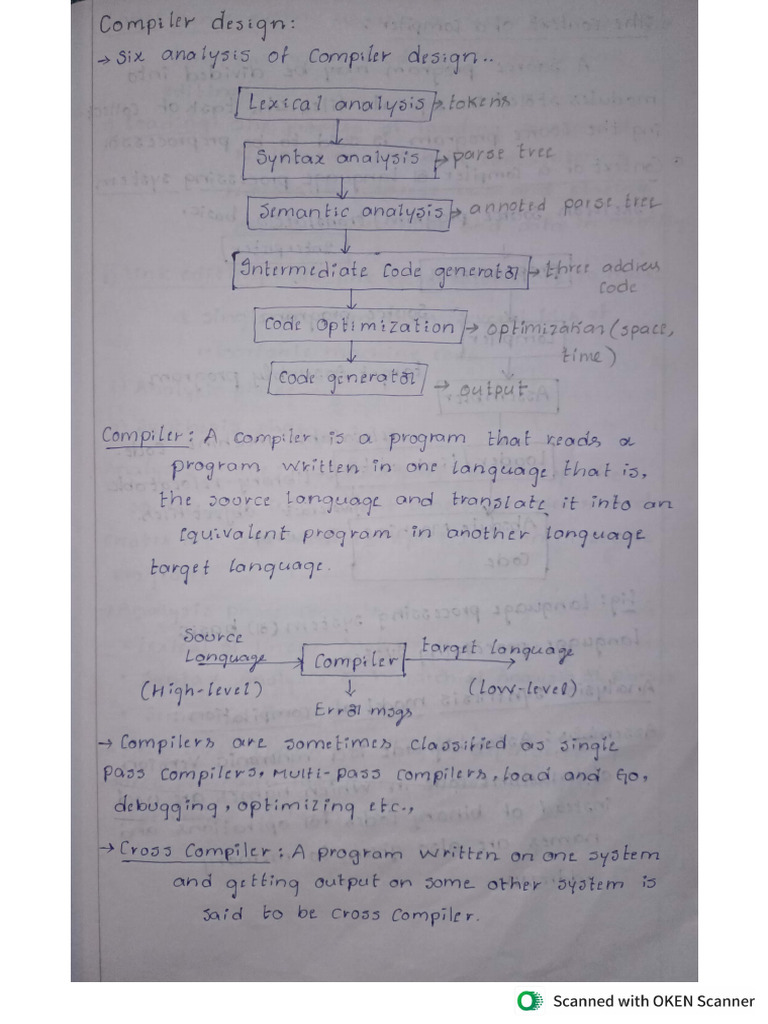 Compiler design:
→ Six analysis of Compiler design..
Lexical analysis → tokens
Syntax analysis → parse tree
Semantic analysis → annoted parse tree
Intermediate Code generator → three address
code
Code Optimization → optimization (space,
time)
Code generator → output
Compiler: A compiler is a program that reads a
program written in one language. that is,
the source language and translate it into an
equivalent program in another language
target language.
Source
Language → Compiler → target language
(High-level) (Low-level)
Error msgs
→ Compilers are sometimes classified as single
pass compilers, Multi-pass compilers, load and Go,
debugging, optimizing etc.,
→ Cross Compiler: A program written on one system
and getting output on some other system is
said to be Cross Compiler.
Scanned with OKEN Scanner